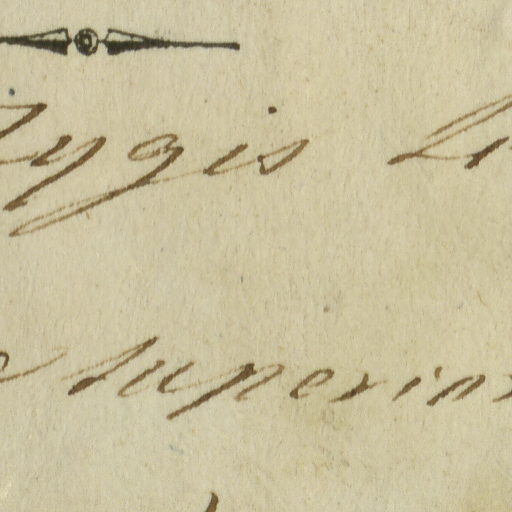 Zygis
superior